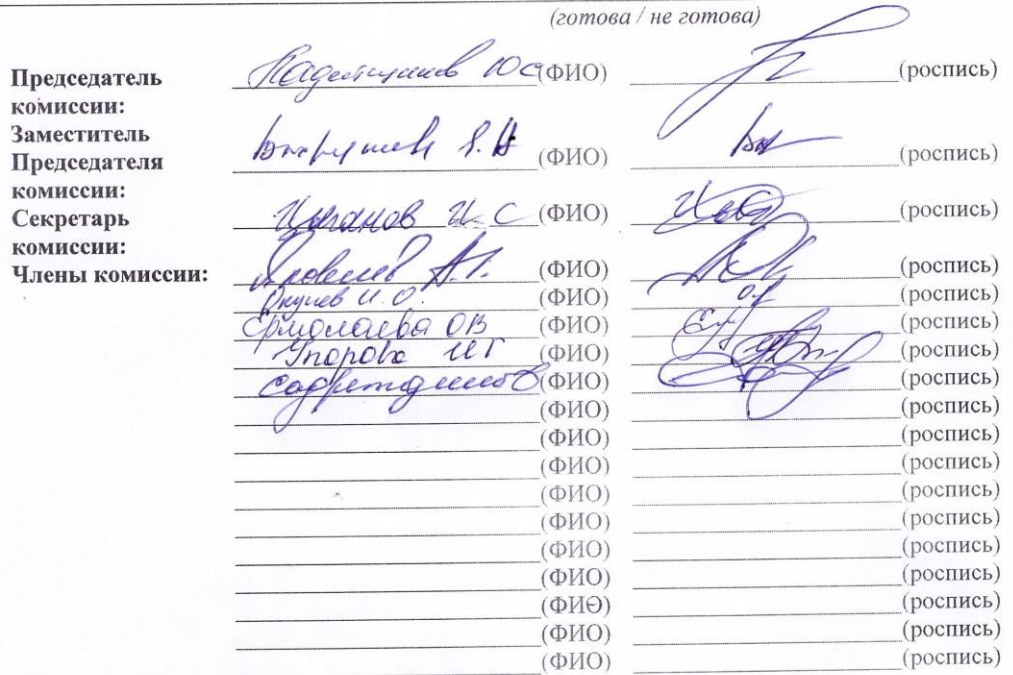 (готова / не готова)
Председатель комиссии: (ФИО) (роспись)
Заместитель Председателя комиссии: (ФИО) (роспись)
Секретарь комиссии: Цыганов И.С (ФИО) (роспись)
Члены комиссии: Яковлев А.Г. (ФИО) (роспись)
И.О. (ФИО) (роспись)
Ермолаева ОВ (ФИО) (роспись)
Упорова (ФИО) (роспись)
(ФИО) (роспись)
(ФИО) (роспись)
(ФИО) (роспись)
(ФИО) (роспись)
(ФИО) (роспись)
(ФИО) (роспись)
(ФИО) (роспись)
(ФИО) (роспись)
(ФИО) (роспись)
(ФИО) (роспись)
(ФИО) (роспись)